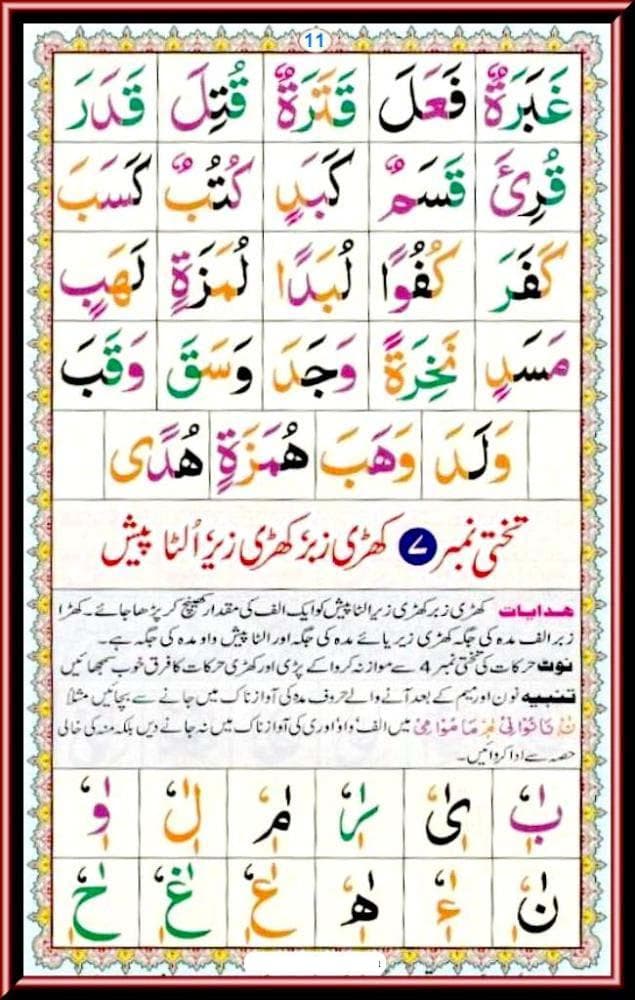 11
غَبَرَةٌ فَعَلَ قَتَرَةٌ قُتِلَ قَدَرَ
قُرِئَ قَسَمٌ كَبَدٍ كُتُبٌ كَسَبَ
كَفَرَ كُفُوًا لُبَدًا لُمَزَةٍ لَهَبٍ
مَسَدٍ نَخِرَةً وَجَدَ وَسَقَ وَقَبَ
وَلَدَ وَهَبَ هُمَزَةٍ هُدًى
تختی نمبر ۷ کھڑی زبر کھڑی زیر اُلٹا پیش
هدایات کھڑی زبر کھڑی زیر الٹا پیش کو ایک الف کی مقدار کھینچ کر پڑھا جائے۔ کھڑا
زبر الف مدہ کی جگہ کھڑی زیر یائے مدہ کی جگہ اور الٹا پیش واو مدہ کی جگہ ہے۔
نوٹ حرکات کی تختی نمبر 4 سے موازنہ کروا کے پڑی اور کھڑی حرکات کا فرق خوب سمجھائیں
تنبیه نون اور میم کے بعد آنے والے حروف مدہ کی آواز ناک میں جانے سے بچائیں مثلاً
نَا نُوْا نِىْ مَا مُوْا مِىْ میں الف واو اور ی کی آواز ناک میں نہ جانے دیں بلکہ منہ کی خالی
حصہ سے ادا کروائیں۔
بٰ یٰ رٰ مٰ لٰ وٰ
نٰ ءٰ هٰ عٰ غٰ حٰ